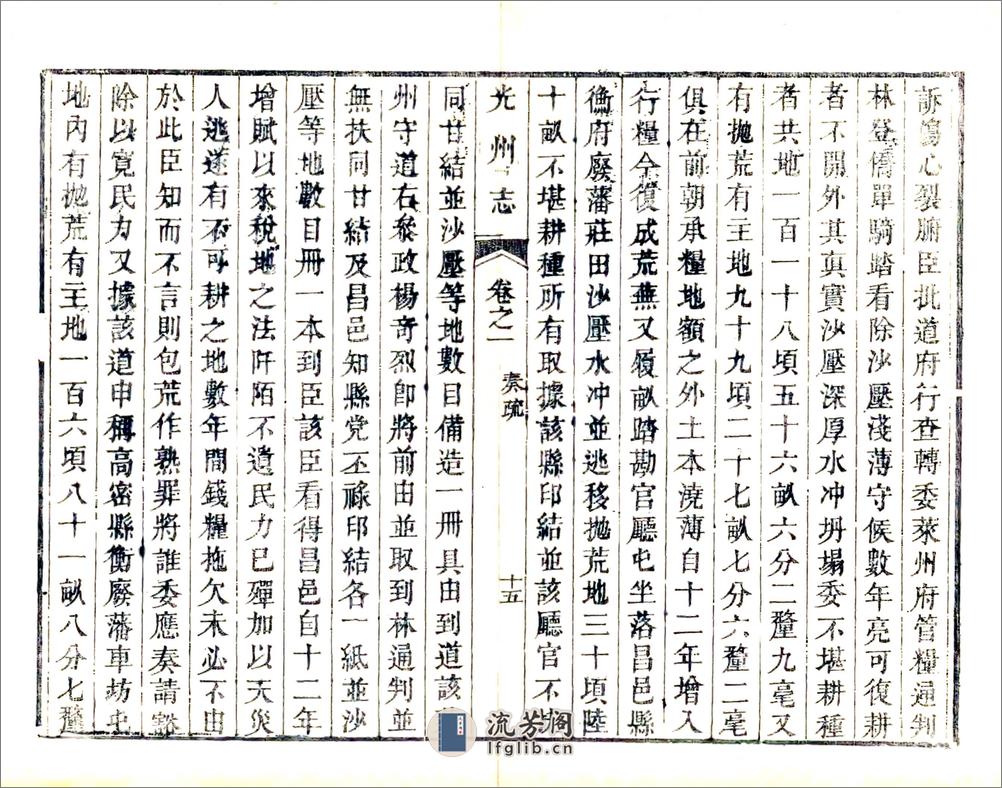 訴傷心裂腑臣批道府行查轉委萊州府管糧通判
林登僑單騎踏看除沙壓淺薄守候數年亮可復耕
者不開外其真實沙壓深厚水冲坍塌委不堪耕種
者共地一百一十八頃五十六畝六分二釐九毫又
有拋荒有主地九十九頃二十七畝七分六釐二毫
俱在前朝承糧地額之外土本澆薄自十二年增入
行糧今復成荒蕪又履畝踏勘官廳屯坐落昌邑縣
衡府廢藩莊田沙壓水冲並逃移拋荒地三十頃陸
十畝不堪耕種所有取據該縣印結並該廳官不扶
同甘結並沙壓等地數目備造一冊具由到道該
州守道右參政楊奇烈卽將前由並取到林通判並
無扶同甘結及昌邑知縣党丕祿印結各一紙並沙
壓等地數目冊一本到臣該臣看得昌邑自十二年
增賦以來稅地之法阡陌不遺民力已殫加以天災
人逃遂有不可耕之地數年間錢糧拖欠未必不由
於此臣知而不言則包荒作熟罪將誰委應奏請豁
除以寬民力又據該道申稱高密縣衡廢藩車坊屯
地內有拋荒有主地一百六頃八十一畝八分七釐
光州志 卷之一 奏疏 十五
流芳阁
lfglib.cn